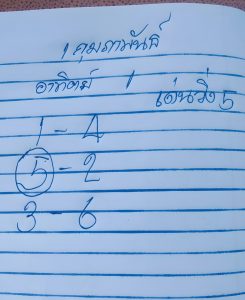 1 กุมภาพันธ์
อาทิตย์ 1 เด่นวิ่ง 5
1 - 4
5 - 2
3 - 6